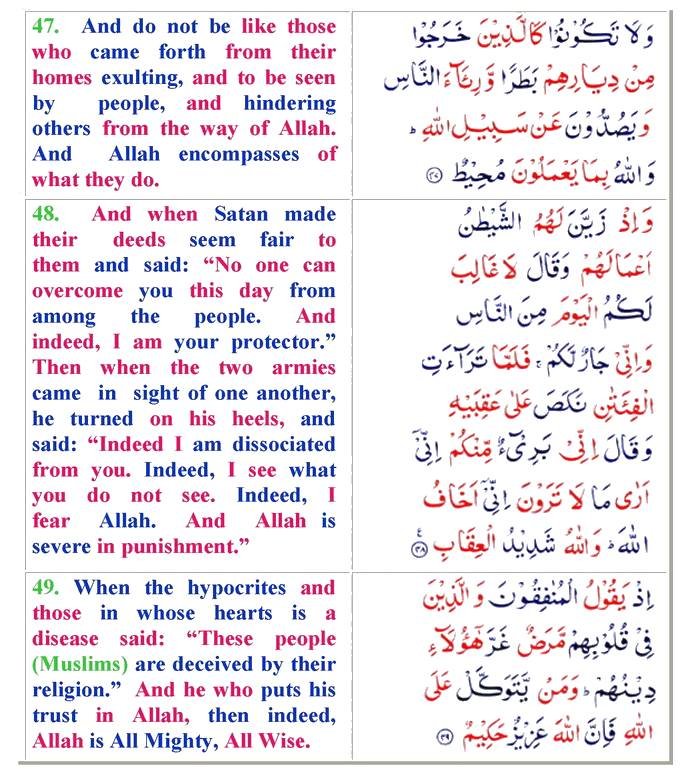 47. And do not be like those
who came forth from their
homes exulting, and to be seen
by people, and hindering
others from the way of Allah.
And Allah encompasses of
what they do.
وَلَا تَكُوْنُوْا كَالَّذِيْنَ خَرَجُوْا
مِنْ دِيَارِهِمْ بَطَرًا وَّرِئَآءَ النَّاسِ
وَيَصُدُّوْنَ عَنْ سَبِيْلِ اللّٰهِ ؕ
وَاللّٰهُ بِمَا يَعْمَلُوْنَ مُحِيْطٌ ۴۷
48. And when Satan made
their deeds seem fair to
them and said: “No one can
overcome you this day from
among the people. And
indeed, I am your protector.”
Then when the two armies
came in sight of one another,
he turned on his heels, and
said: “Indeed I am dissociated
from you. Indeed, I see what
you do not see. Indeed, I
fear Allah. And Allah is
severe in punishment.”
وَاِذْ زَيَّنَ لَهُمُ الشَّيْطٰنُ
اَعْمَالَهُمْ وَقَالَ لَا غَالِبَ
لَكُمُ الْيَوْمَ مِنَ النَّاسِ
وَاِنِّيْ جَارٌ لَّكُمْ ۚ فَلَمَّا تَرَآءَتِ
الْفِئَتٰنِ نَكَصَ عَلٰى عَقِبَيْهِ
وَقَالَ اِنِّيْ بَرِيْٓءٌ مِّنْكُمْ اِنِّيْٓ
اَرٰى مَا لَا تَرَوْنَ اِنِّيْٓ اَخَافُ
اللّٰهَ ؕ وَاللّٰهُ شَدِيْدُ الْعِقَابِ ۴۸
49. When the hypocrites and
those in whose hearts is a
disease said: “These people
(Muslims) are deceived by their
religion.” And he who puts his
trust in Allah, then indeed,
Allah is All Mighty, All Wise.
اِذْ يَقُوْلُ الْمُنٰفِقُوْنَ وَالَّذِيْنَ
فِيْ قُلُوْبِهِمْ مَّرَضٌ غَرَّ هٰٓؤُلَآءِ
دِيْنُهُمْ ؕ وَمَنْ يَّتَوَكَّلْ عَلَى
اللّٰهِ فَاِنَّ اللّٰهَ عَزِيْزٌ حَكِيْمٌ ۴۹